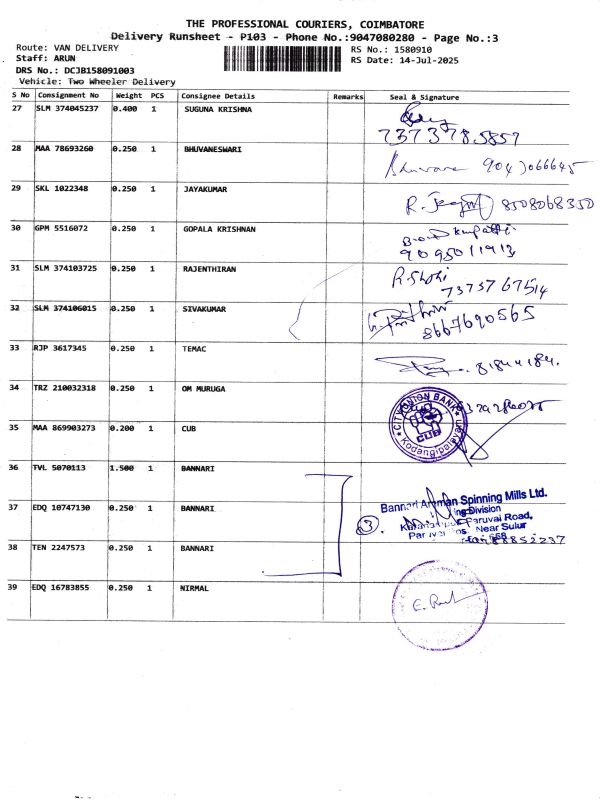 THE PROFESSIONAL COURIERS, COIMBATORE
Delivery Runsheet - P103 - Phone No.:9047080280 - Page No.:3
Route: VAN DELIVERY RS No.: 1580910
Staff: ARUN RS Date: 14-Jul-2025
DRS No.: DCJB158091003
Vehicle: Two Wheeler Delivery
S No Consignment No Weight PCS Consignee Details Remarks Seal & Signature
27 SLM 374045237 0.400 1 SUGUNA KRISHNA
7373785857
28 MAA 78693260 0.250 1 BHUVANESWARI
Bhuvana 9043066645
29 SKL 1022348 0.250 1 JAYAKUMAR
R. 8508068350
30 GPM 5516072 0.250 1 GOPALA KRISHNAN
9095011913
31 SLM 374103725 0.250 1 RAJENTHIRAN
7373767514
32 SLM 374106015 0.250 1 SIVAKUMAR
8667690565
33 RJP 3617345 0.250 1 TEMAC
34 TRZ 210032318 0.250 1 OM MURUGA
35 MAA 869903273 0.200 1 CUB
CITY UNION BANK
CUB
Kodangipalayam
36 TVL 5070113 1.500 1 BANNARI
37 EDQ 10747130 0.250 1 BANNARI
Bannari Amman Spinning Mills Ltd.
Division
Paruvai Road,
3 Near Sulur
38 TEN 2247573 0.250 1 BANNARI
39 EDQ 16783855 0.250 1 NIRMAL